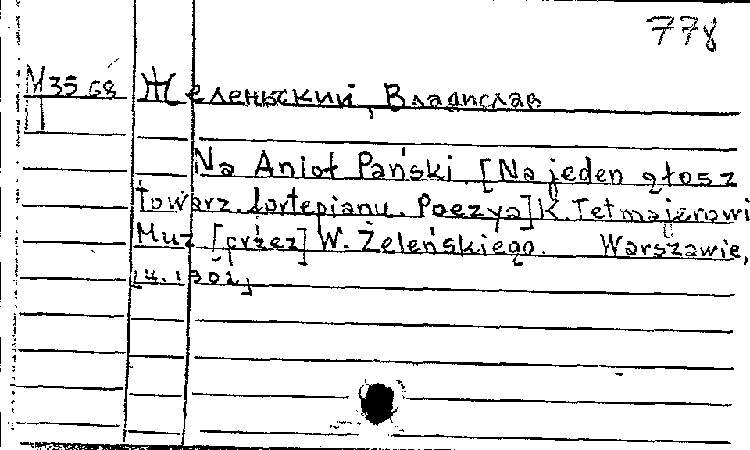 778
М3568 Желеньский, Владислав
Na Anioł Pański. [Na jeden głos z
towarz. fortepianu. Poezya] K. Tetmajerowi
Muz [przez] W. Żeleńskiego. Warszawie,
[4.1902]